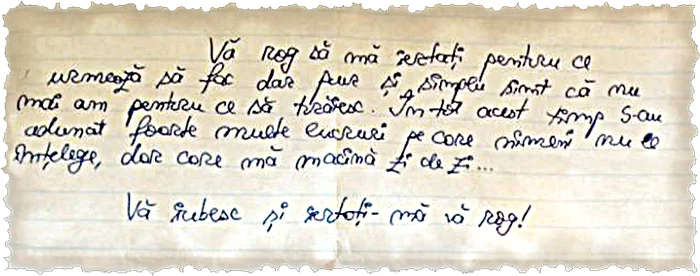 Vă rog să mă iertați pentru ce
urmează să fac dar pur și simplu simt că nu
mai am pentru ce să trăiesc. În tot acest timp s-au
adunat foarte multe lucruri pe care nimeni nu le
înțelege, dar care mă macină zi de zi...
Vă iubesc și iertați-mă vă rog!